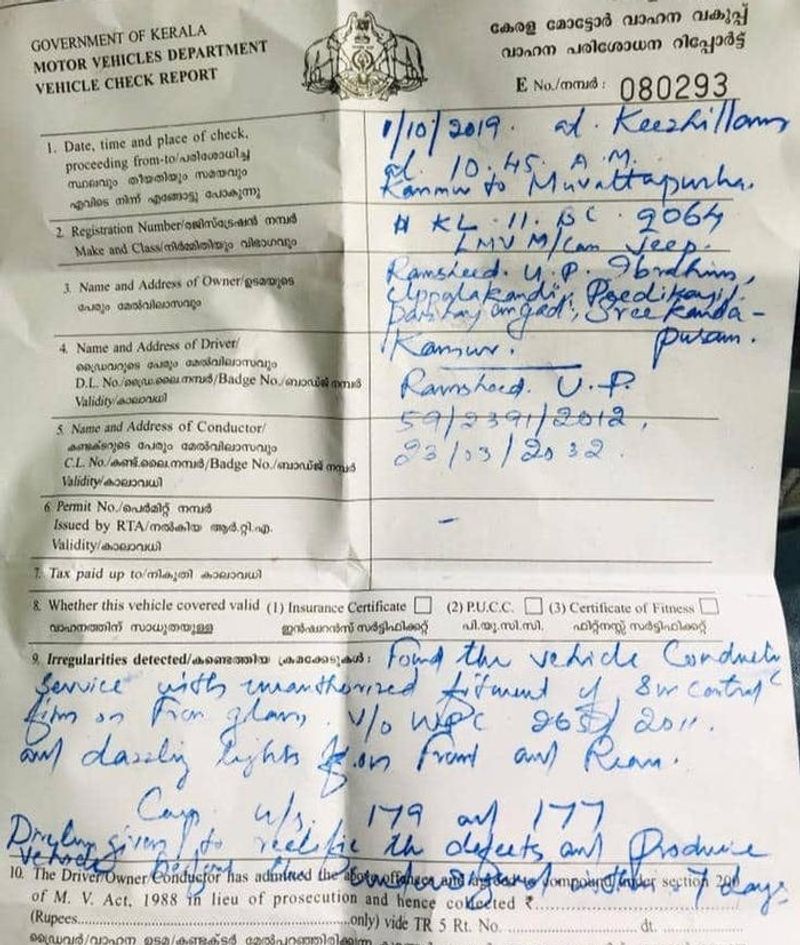 GOVERNMENT OF KERALA
MOTOR VEHICLES DEPARTMENT
VEHICLE CHECK REPORT
കേരള മോട്ടോർ വാഹന വകുപ്പ്
വാഹന പരിശോധന റിപ്പോർട്ട്
E No./നമ്പർ : 080293
1. Date, time and place of check,
proceeding from-to/പരിശോധിച്ച
സ്ഥലവും തീയതിയും സമയവും
എവിടെ നിന്ന് എങ്ങോട്ടു പോകുന്നു
1/10/2019. at. Keezhillam
at. 10.45. A.M.
Kannur to Muvattupuzha.
2. Registration Number/രജിസ്ട്രേഷൻ നമ്പർ
Make and Class/നിർമ്മിതിയും വിഭാഗവും
KL. 11. BC. 9064
LMV M/Cam Jeep.
3. Name and Address of Owner/ഉടമയുടെ
പേരും മേൽവിലാസവും
Ramsheed. U. P. Ibrahim,
Uppalakandi, Peedikayil,
angadi, Sreekanda-
Kannur. puram.
4. Name and Address of Driver/
ഡ്രൈവറുടെ പേരും മേൽവിലാസവും
D.L. No./ഡ്രൈ.ലൈ.നമ്പർ/Badge No./ബാഡ്ജ് നമ്പർ
Validity/കാലാവധി
Ramsheed. U. P.
59/2391/2012,
23/03/2032.
5. Name and Address of Conductor/
കണ്ടക്ടറുടെ പേരും മേൽവിലാസവും
C.L. No./കണ്ട്.ലൈ.നമ്പർ/Badge No./ബാഡ്ജ് നമ്പർ
Validity/കാലാവധി
6. Permit No./പെർമിറ്റ് നമ്പർ
Issued by RTA/നൽകിയ ആർ.റ്റി.എ.
Validity/കാലാവധി
–
7. Tax paid up to/നികുതി കാലാവധി
8. Whether this vehicle covered valid (1) Insurance Certificate (2) P.U.C.C. (3) Certificate of Fitness
വാഹനത്തിന് സാധുതയുള്ള ഇൻഷുറൻസ് സർട്ടിഫിക്കറ്റ് പി.യു.സി.സി. ഫിറ്റ്നസ്സ് സർട്ടിഫിക്കറ്റ്
9. Irregularities detected/കണ്ടെത്തിയ ക്രമക്കേടുകൾ : Found the vehicle Conducts
Service with unauthorized fitment of Sun Control
film on Fron glass. V/o WPC 265/2011.
and dazzling lights on Front and Rear.
u/s. 179 and 177
given to rectifie the defects and Produce
vehicle 7 days
10. The Driver/Owner/Conductor has admitted the above offences and agreed to compound under section 200
of M. V. Act, 1988 in lieu of prosecution and hence collected ₹
(Rupees only) vide TR 5 Rt. No. dt.
ഡ്രൈവർ/വാഹന ഉടമ/കണ്ടക്ടർ മേൽപറഞ്ഞിരിക്കുന്ന